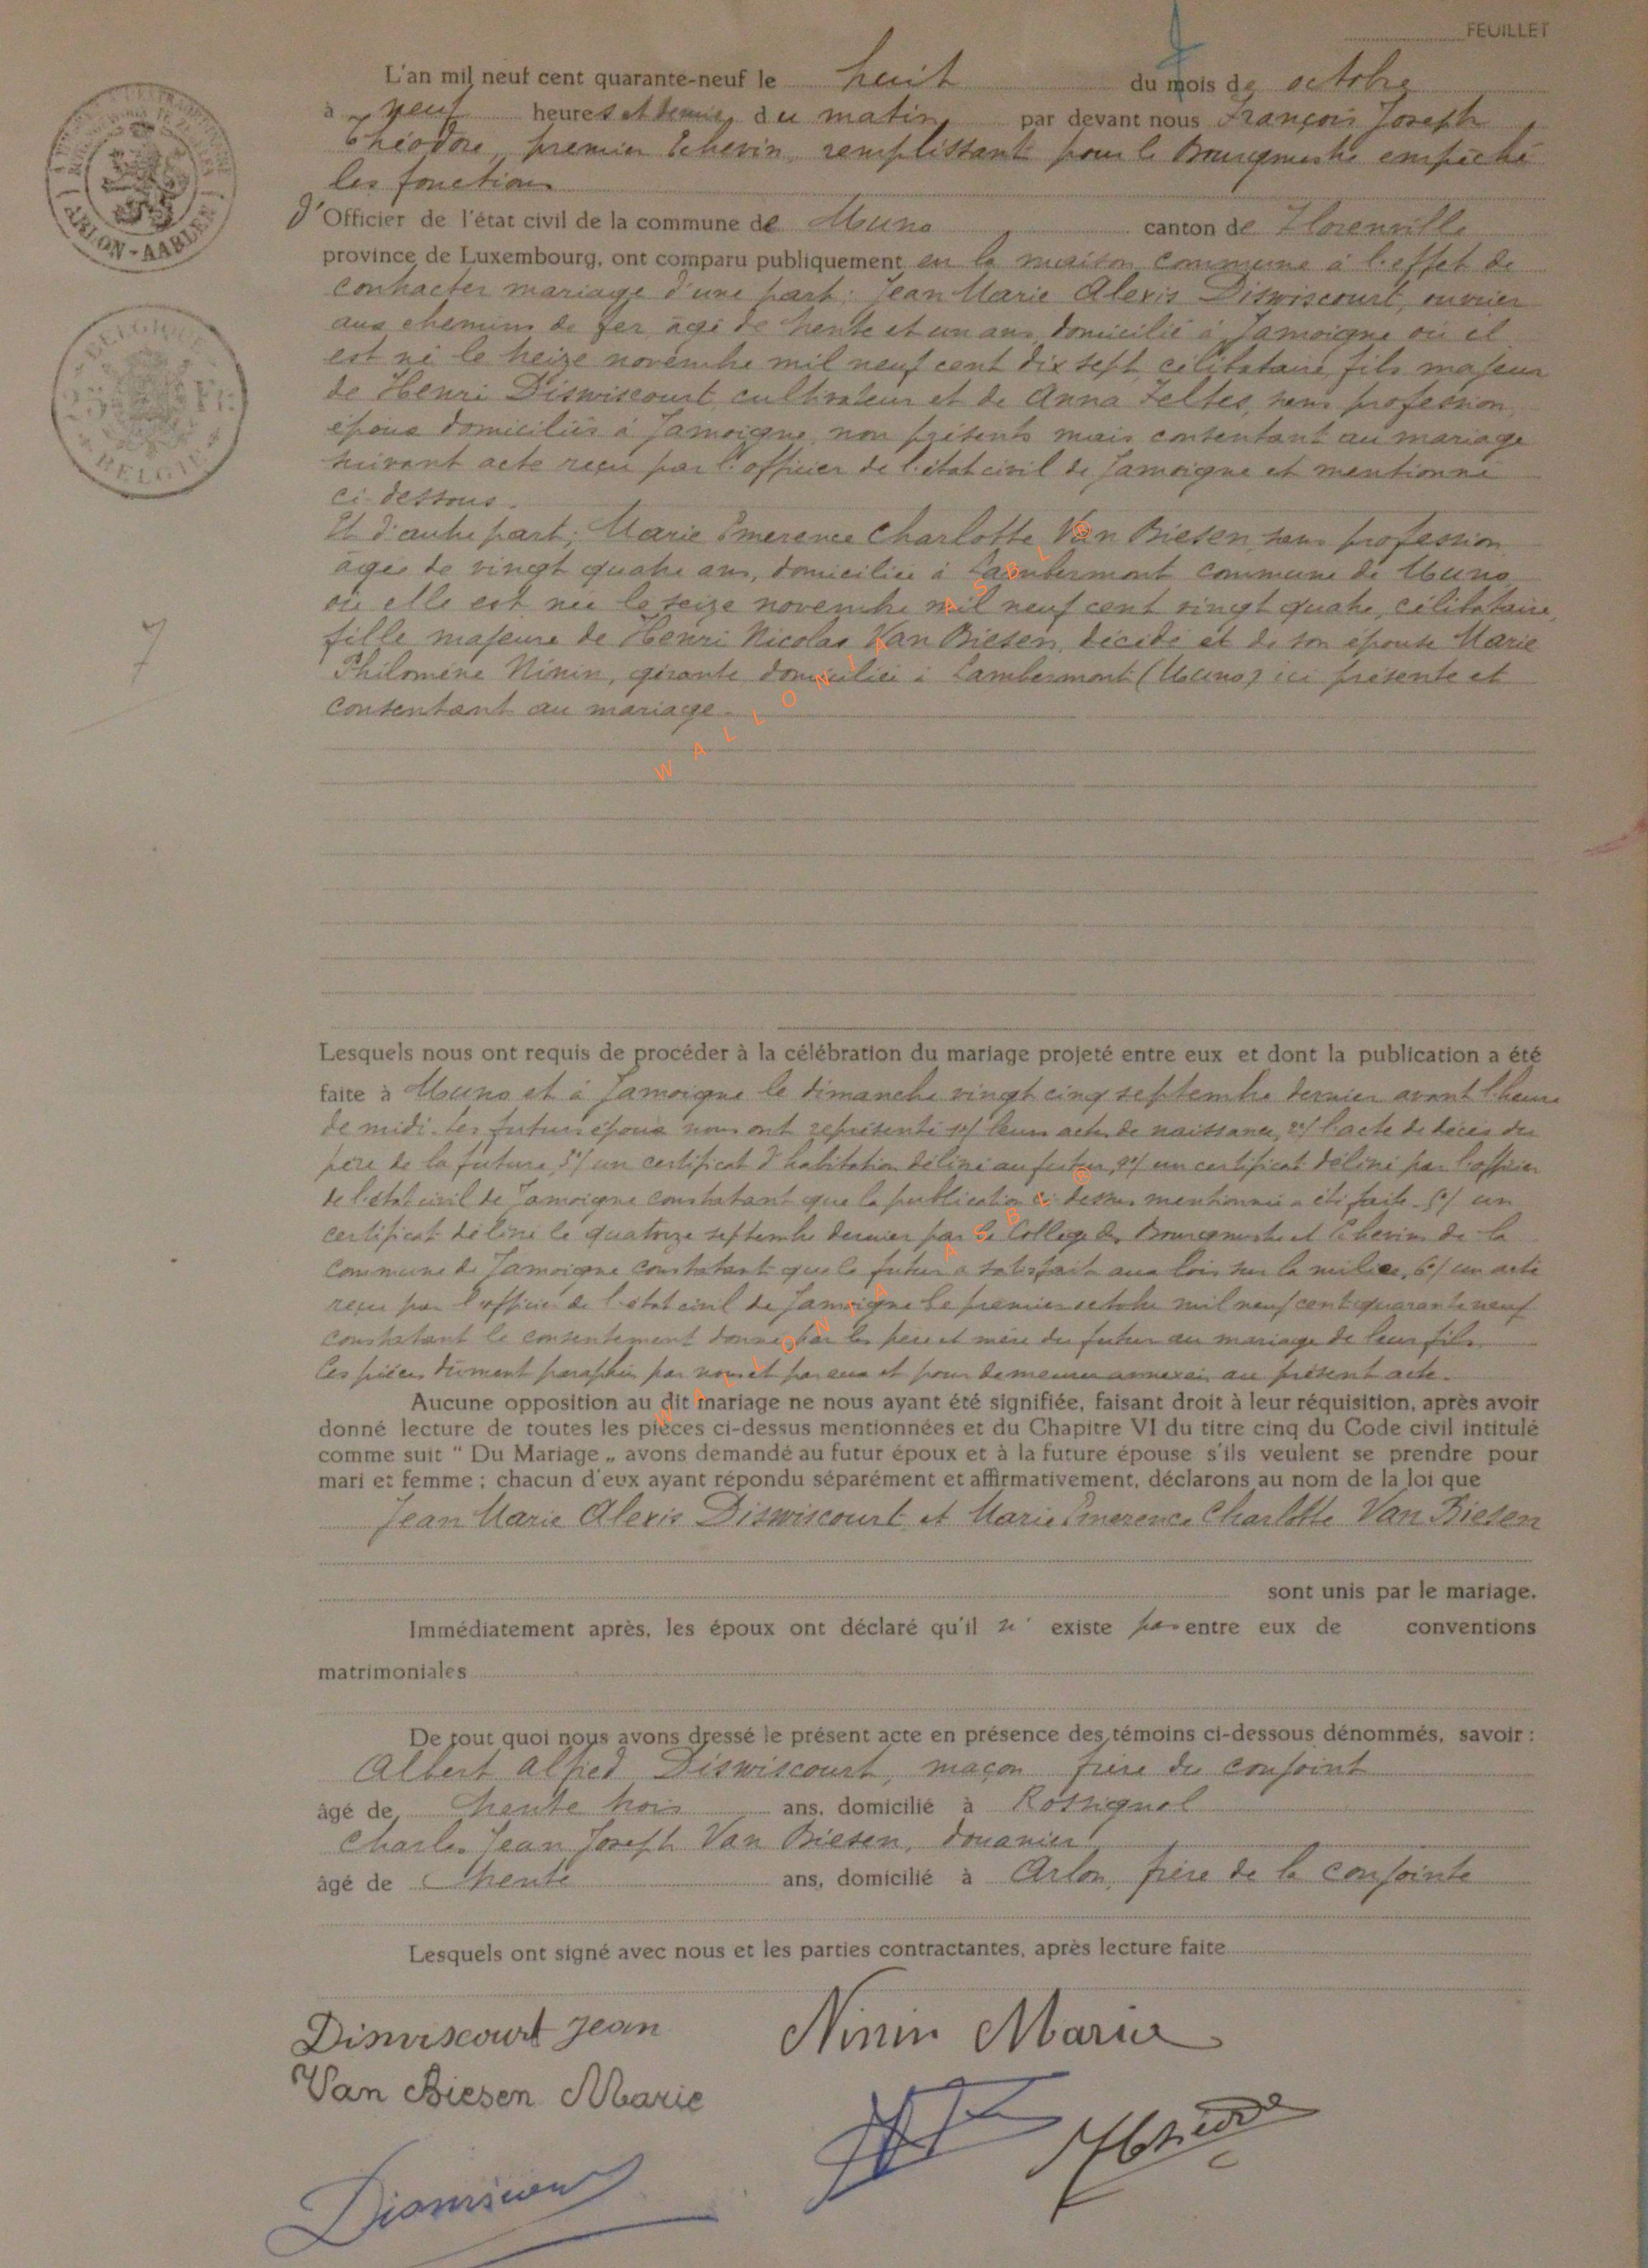 FEUILLET
L'an mil neuf cent quarante-neuf le huit du mois de octobre
à neuf heures et demie du matin par devant nous François Joseph
Théodore, premier Echevin, remplissant pour le Bourgmestre empêché
les fonctions
d'Officier de l'état civil de la commune de Muno canton de Florenville
province de Luxembourg, ont comparu publiquement en la maison commune à l'effet de
contracter mariage d'une part; Jean Marie Alexis Diswiscourt, ouvrier
aux chemins de fer, âgé de trente et un ans, domicilié à Jamoigne où il
est né le treize novembre mil neuf cent dix sept, célibataire, fils majeur
de Henri Diswiscourt cultivateur et de Anna Feltes, sans profession,
époux domiciliés à Jamoigne, non présents mais consentant au mariage
suivant acte reçu par l'officier de l'état civil de Jamoigne et mentionné
ci-dessous.
Et d'autre part; Marie Emerence Charlotte Van Biesen, sans profession,
âgée de vingt quatre ans, domiciliée à Lambermont commune de Muno
où elle est née le seize novembre mil neuf cent vingt quatre, célibataire,
fille majeure de Henri Nicolas Van Biesen, décédé et de son épouse Marie
Philomène Ninin, gérante domiciliée à Lambermont (Muno) ici présente et
consentant au mariage.
7
WALLONIA ASBL ®
ARLON-AARLEN
BELGIQUE
BELGIE
Lesquels nous ont requis de procéder à la célébration du mariage projeté entre eux et dont la publication a été
faite à Muno et à Jamoigne le dimanche vingt cinq septembre dernier avant l'heure
de midi. Les futurs époux nous ont représenté 1°/ leurs actes de naissance, 2°/ l'acte de décès du
père de la future, 3°/ un certificat d'habitation délivré au futur, 4°/ un certificat délivré par l'officier
de l'état civil de Jamoigne constatant que la publication ci-dessus mentionnée a été faite. 5°/ un
certificat délivré le quatorze septembre dernier par le Collège des Bourgmestre et Echevins de la
Commune de Jamoigne constatant que le futur a satisfait aux lois sur la milice, 6°/ un acte
reçu par l'officier de l'état civil de Jamoigne le premier octobre mil neuf cent quarante neuf
constatant le consentement donné par les père et mère du futur au mariage de leur fils.
Ces pièces dûment paraphées par nous et par eux et pour demeurer annexées au présent acte.
WALLONIA ASBL ®
Aucune opposition au dit mariage ne nous ayant été signifiée, faisant droit à leur réquisition, après avoir
donné lecture de toutes les pièces ci-dessus mentionnées et du Chapitre VI du titre cinq du Code civil intitulé
comme suit " Du Mariage „ avons demandé au futur époux et à la future épouse s'ils veulent se prendre pour
mari et femme ; chacun d'eux ayant répondu séparément et affirmativement, déclarons au nom de la loi que
Jean Marie Alexis Diswiscourt et Marie Emerence Charlotte Van Biesen
sont unis par le mariage.
Immédiatement après, les époux ont déclaré qu'il n' existe pas entre eux de conventions
matrimoniales
De tout quoi nous avons dressé le présent acte en présence des témoins ci-dessous dénommés, savoir :
Albert Alfred Diswiscourt, maçon frère du conjoint
âgé de trente trois ans, domicilié à Rossignol
Charles Jean Joseph Van Biesen, douanier
âgé de trente ans, domicilié à Arlon, frère de la conjointe
Lesquels ont signé avec nous et les parties contractantes, après lecture faite
Diswiscourt Jean Ninin Marie
Van Biesen Marie